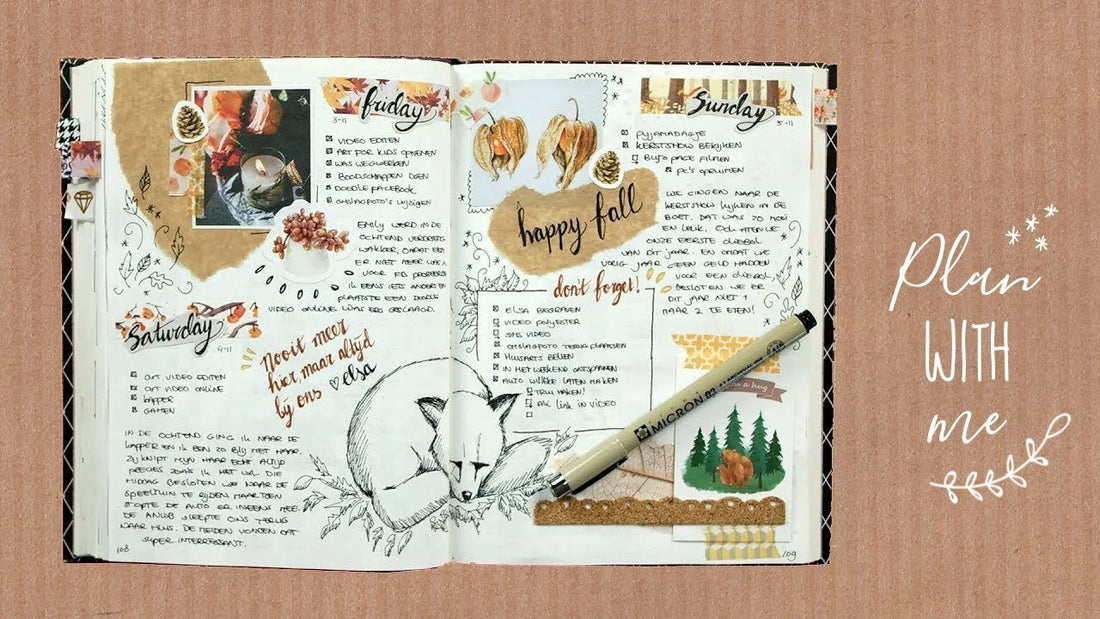 friday
3-11
VIDEO EDITEN
ART FOR KIDS OPNEMEN
WAS WEGWERKEN
BOODSCHAPPEN DOEN
DOODLE FACEBOOK
WAKKER, OMDAT
ER NIET MEER WAS
VOOR FB
IK EENS IETS ANDERS
PLAATSTE EEN DOODLE
VIDEO ONLINE WAS ERG GESLAAGD.
Saturday
4-11
nooit meer
hier, maar altijd
bij ons ♡ elsa
VIDEO EDITEN
VIDEO ONLINE
KAPPER
GAMEN
IN DE OCHTEND GING IK NAAR DE
KAPPER EN IK BEN ZO BLIJ MET HAAR.
ZIJ KNIPT MIJN HAAR ECHT ALTIJD
PRECIES ZOALS IK HET WIL. DIE
MIDDAG BESLOTEN WE NAAR DE
SPEELTUIN TE RIJDEN MAAR TOEN
STOPTE DE AUTO ER INEENS MEE.
DE ANWB SLEEPTE ONS TERUG
NAAR HUIS. DE MEIDEN VONDEN DAT
SUPER INTERRESSANT.
108
happy fall
don't forget!
ELSA BEGRAVEN
VIDEO POLYESTER
VIDEO
TERUG PLAATSEN
HUISARTS BELLEN
IN HET WEEKEND ONTSPANNEN
AUTO LATEN MAKEN
TRUI MAKEN!
LINK IN VIDEO
Sunday
5-11
PYJAMADAGJE
KERSTSHOW BEKIJKEN
BUJO PAGE FILMEN
PC'S OPRUIMEN
WE GINGEN NAAR DE
KERSTSHOW KIJKEN IN DE
BOET. DAT WAS ZO MOOI
EN LEUK. OOK ATEN WE
ONZE EERSTE OLIEBOL
VAN DIT JAAR. EN OMDAT WE
VORIG JAAR GEEN GELD HADDEN
VOOR EEN OLIEBOL
BESLOTEN WE ER
DIT JAAR NIET 1
MAAR 2 TE ETEN!
MICRON 02
a hug
109
Plan
WITH
me